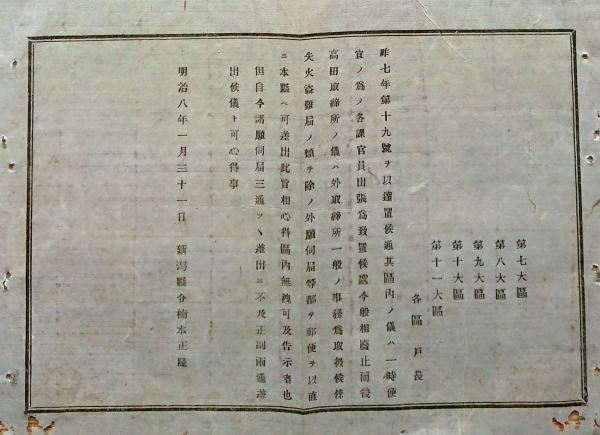 第七大區
第八大區
第九大區
第十大區
第十一大區
各區 戸長
昨七年第十九號ヲ以達置候通其區内ノ儀ハ一時便
宜ノ爲メ各課官員出張爲致置候處今般相廢止爾後
高田取締所ノ儀ハ外取締所一般ノ事務爲取扱候條
失火盜難届ノ類ヲ除ノ外願伺届等都テ郵便ヲ以直
ニ本縣ヘ可差出此旨相心得區内無洩可及告示者也
但自今諸願伺届三通ツヽ差出ニ不及正副兩通差
出候儀ト可心得事
明治八年一月三十一日 新潟縣令楠本正隆